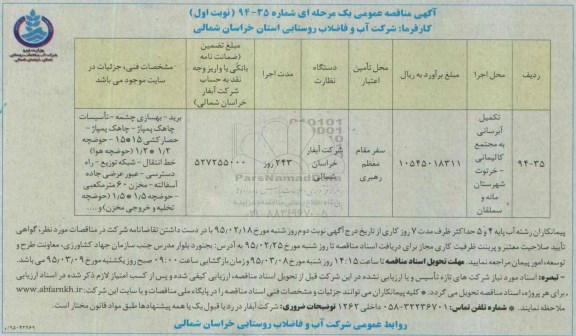 آگهی مناقصه عمومی یک مرحله ای شماره ۳۵-۹۴ ( نوبت اول)
کارفرما: شرکت آب و فاضلاب روستایی استان خراسان شمالی
ردیف
محل اجرا
مبلغ برآورد به ریال
محل تأمین اعتبار
دستگاه نظارت
مدت اجرا
مبلغ تضمین
(ضمانت نامه
بانکی یا واریز وجه
نقد به حساب
شرکت آبفار
خراسان شمالی)
مشخصات فنی، جزئیات در
سایت موجود می باشد
۹۴-۳۵
تکمیل
آبرسانی
به مجتمع
کالیمانی
- خرتوت
شهرستان
مانه و
سملقان
۱۰۵۴۵۰۱۸۳۱۱
سفر مقام
معظم
رهبری
شرکت آبفار
خراسان
شمالی
۲۴۳ روز
۵۲۷۲۵۵۰۰۰
برید - بهسازی چشمه - تأسیسات
چاهک پمپاژ - چاهک پمپاژ -
حصارکشی ۱۵*۱۵ - حوضچه
۱/۲ * ۱/۲ (حوضچه هوا)
خط انتقال - شبکه توزیع - راه
دسترسی - عبور عرضی جاده
آسفالته - مخزن ۶۰ مترمکعبی
- حوضچه ۱/۵ * ۱/۵ (حوضچه
تخلیه و خروجی مخزن) و....
پیمانکاران رشته آب پایه ۴ و ۵ حداکثر ظرف مدت ۷ روز کاری از تاریخ درج آگهی نوبت دوم روز شنبه مورخ ۹۵/۰۲/۱۸ با در دست داشتن تقاضانامه شرکت در مناقصات مورد نظر، گواهی
تأیید صلاحیت معتبر و پرینت ظرفیت کاری مجاز برای دریافت اسناد مناقصه تا روز شنبه مورخ ۹۵/۰۲/۲۵ به آدرس: بجنورد بلوار مدرس جنب سازمان جهاد کشاورزی، معاونت طرح و
توسعه، امور پیمان مراجعه نمایند. مهلت تحویل اسناد مناقصه تا ساعت ۱۴:۱۵ روز شنبه مورخ ۹۵/۰۳/۰۸ و زمان بازگشایی ساعت ۰۹:۰۰ صبح روز یکشنبه مورخ ۹۵/۰۳/۰۹ می باشد.
- تبصره: اسناد مورد نیاز شرکت های تازه تأسیس و یا ارزیابی نشده در این شرکت قبل از تحویل اسناد مناقصه، ارزیابی کیفی شده و پس از کسب امتیاز لازم ذکر شده در اسناد ارزیابی
، برای هر پروژه، اسناد مناقصه تحویل می گردد. * کلیه پیمانکاران می توانند جزئیات و مشخصات فنی اسناد مناقصه را در پایگاه ملی مناقصات و یا سایت این شرکت: www.abfarnkh.ir
ملاحظه نمایند. * شماره تلفن تماس: ۳۲۲۳۶۷۰۱-۰۵۸ داخلی ۱۲۶۲ توضیحات ضروری: شرکت آبفار در رد یا قبول یک یا همه پیشنهادها طبق مواد قانون مختار است.
روابط عمومی شرکت آب و فاضلاب روستایی خراسان شمالی